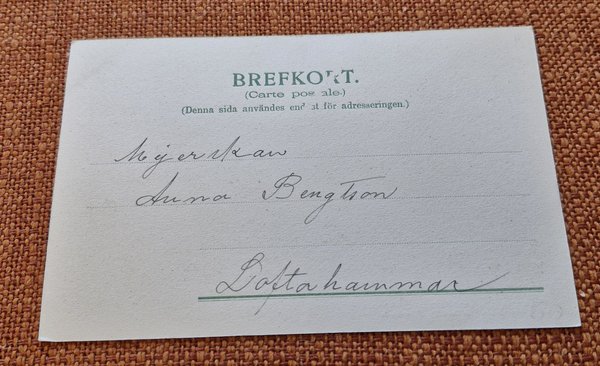 BREFKORT.
(Carte postale.)
(Denna sida användes endast för adresseringen.)
Mejerskan
Anna Bengtson
Loftahammar